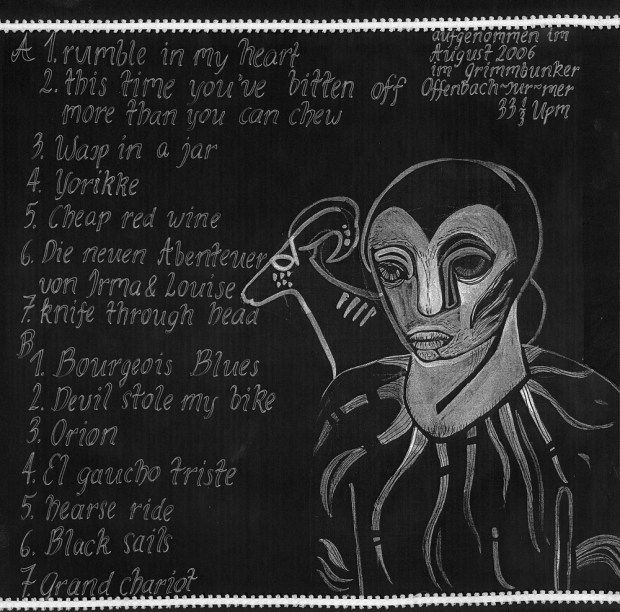 A 1. rumble in my heart
2. this time you've bitten off
more than you can chew
3. Wasp in a jar
4. Yorikke
5. Cheap red wine
6. Die neuen Abenteuer
von Irma & Louise
7. knife through head
B
1. Bourgeois Blues
2. Devil stole my bike
3. Orion
4. El gaucho triste
5. hearse ride
6. Black sails
7. Grand chariot
aufgenommen im
August 2006
im Grimmbunker
Offenbach-sur-mer
33 1/3 Upm